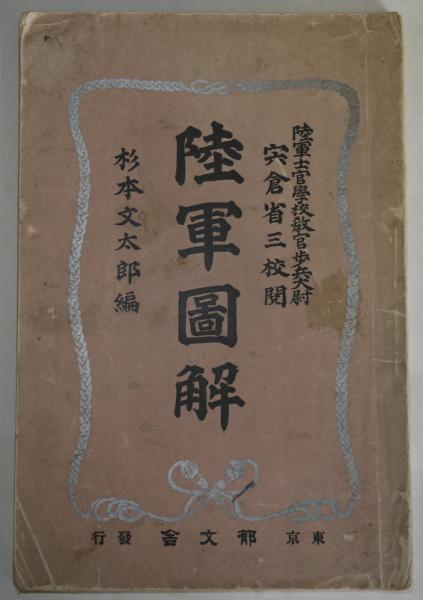 陸軍士官學校教官步兵大尉
宍倉省三校閱
陸軍圖解
杉本文太郎編
東京 郁文舍 發行